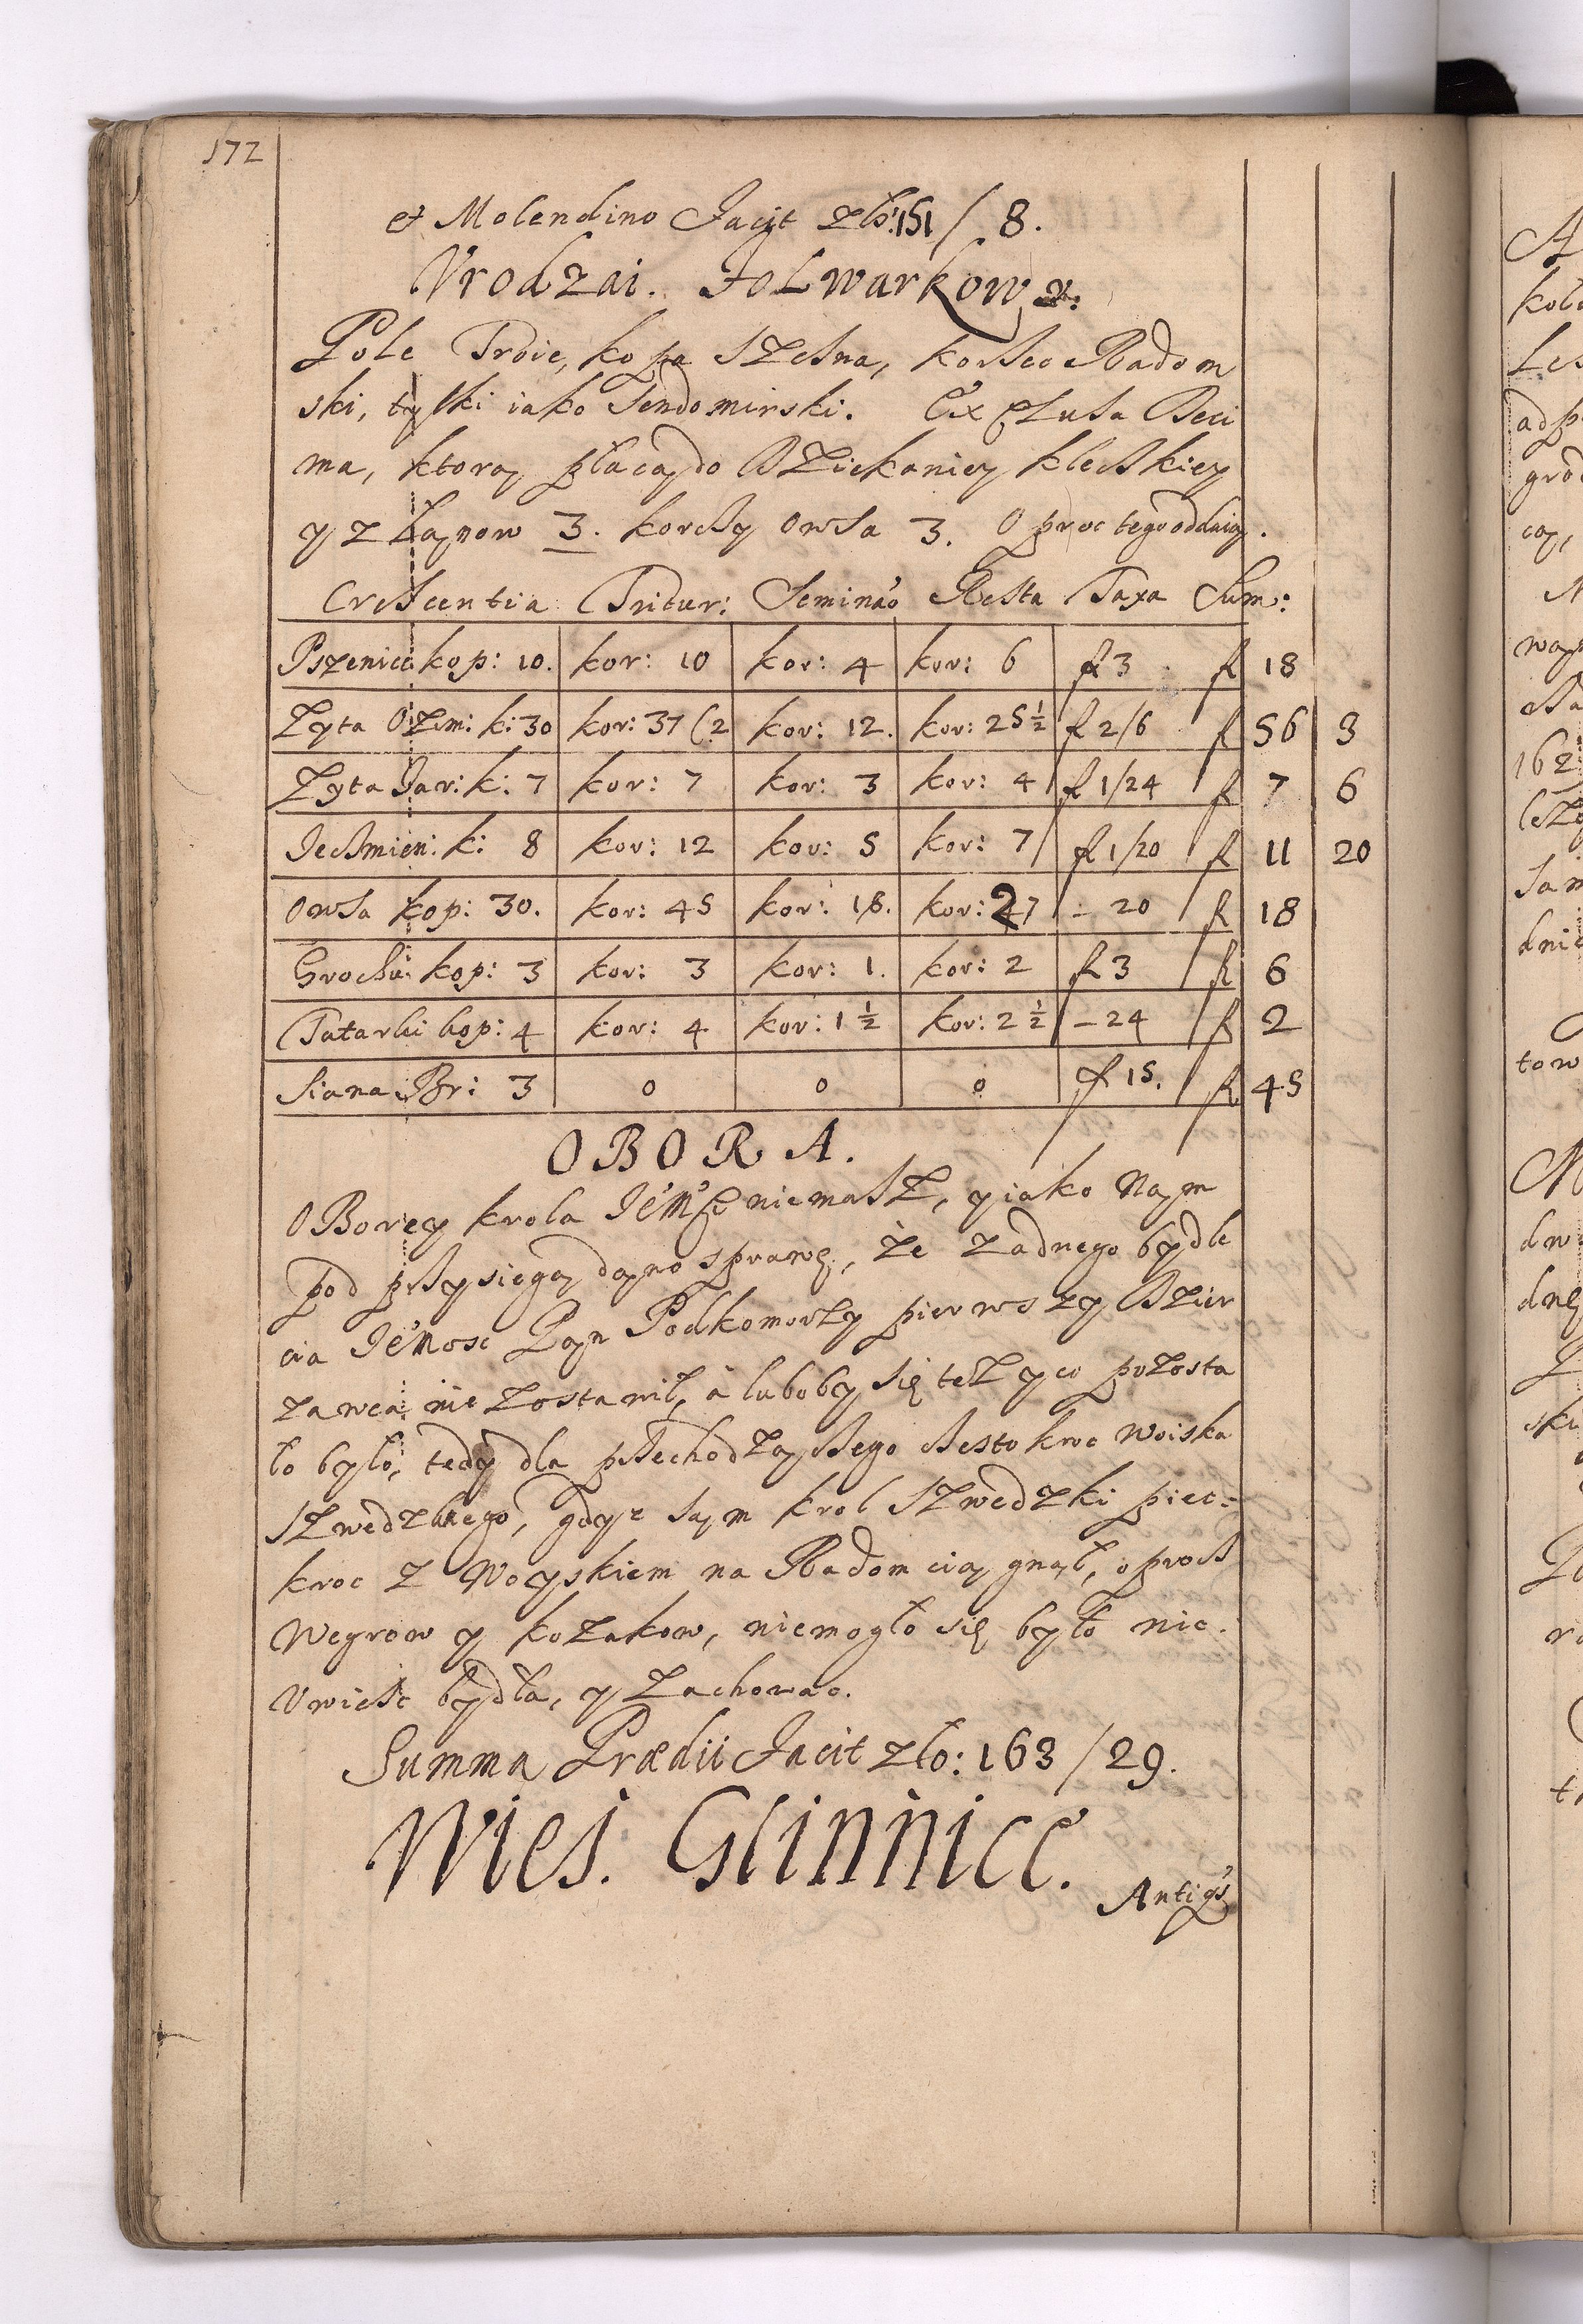 172
et Molendino Facit zło: 151 / 8.
Vrodzai. Folwarkowy.
Pole Troie, kopa szesna, korsec Radom
ski, tylki iako Sendomirski. Exclusa Deci
ma, ktorą płacą do Dziekaniey kleckiey
y z łanow 3. korcssy owsa 3. Oproc tego oddaią.
Crescentia Tritur: Seminao Resta Taxa Sum:
Pszenice kop: 10. kor: 10 kor: 4 kor: 6 f 3 f 18
Zyta Ozim: k: 30 kor: 37 (2 kor: 12. kor: 25 1/2 f 2/6 f 56 3
Zyta Jar: k: 7 kor: 7 kor: 3 kor: 4 f 1/24 f 7 6
Jecsmien: k: 8 kor: 12 kor: 5 kor: 7 f 1/20 f 11 20
Owsa kop: 30. kor: 45 kor: 18. kor: 27 - 20 f 18
Grochu kop: 3 kor: 3 kor: 1. kor: 2 f 3 f 6
Tatarki kop: 4 kor: 4 kor: 1 1/2 kor: 2 1/2 - 24 f 2
Siana Br: 3 0 0 0 f 15. f 45
OBORA.
OBorey krola Jeͦ Mſci niemasz, y iako Nąm
pod pssysiegą dąno sprawę, że zadnego bydle
cia Jeͦ Mosc Pąn Podkomorzy pierwszy Dzier
zawca nie zostawił, à luboby się też y co pozosta
ło było, tedy dla pssechodząssego ssestokroc woiska
szwedzkiego, gdyz sąm krol szwedzki piec=
kroc z Woyskiem na Radom ciągnął, oprocs
Wegrow y kozakow, niemogło się było nic.
Uwiesc bydła, y zachowac.
Summa Prædii Facit zło: 163 / 29.
Wies. Glinnice.
Antiqs